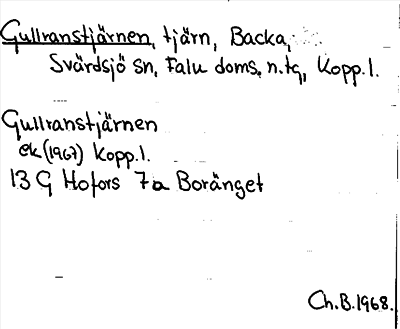 Gullranstjärnen, tjärn, Backa,
Svärdsjö sn, Falu doms. n.tg, Kopp.l.
Gullranstjärnen
ek (1967) Kopp.l.
13 G Hofors 7a Boränget
Ch.B.1968.